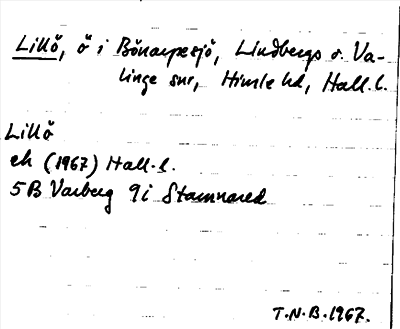 Lillö, ö i Bönarpesjö, Lindbergs o. Va-
linge snr, Himle hd, Hall. l.
Lillö
ek (1967) Hall. l.
5B Varberg 9i Stamnared
T.N.B. 1967.